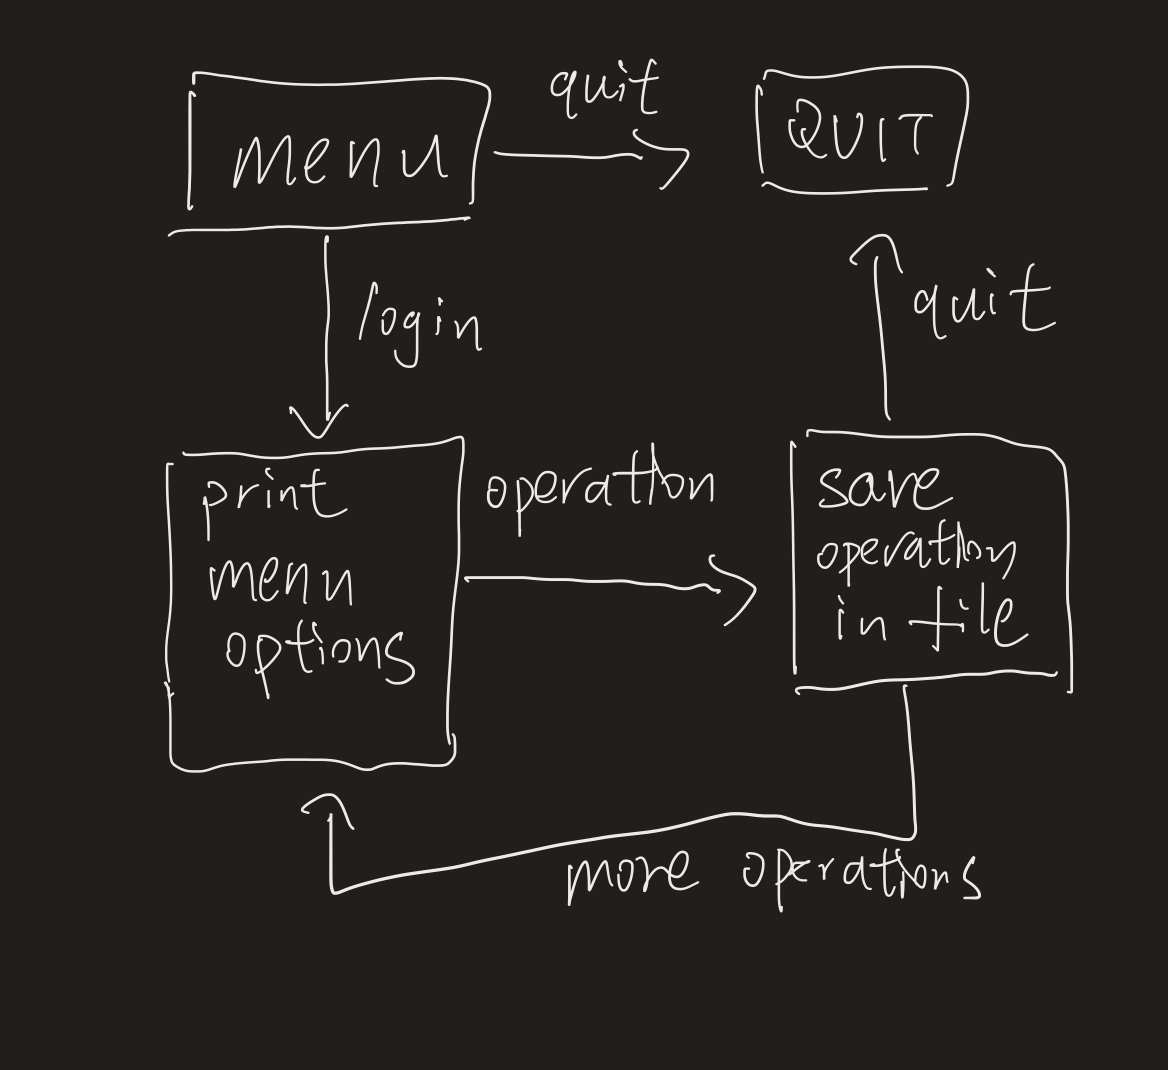 menu
quit
QUIT
login
quit
print
menu
options
operation
save
operation
in file
more operations